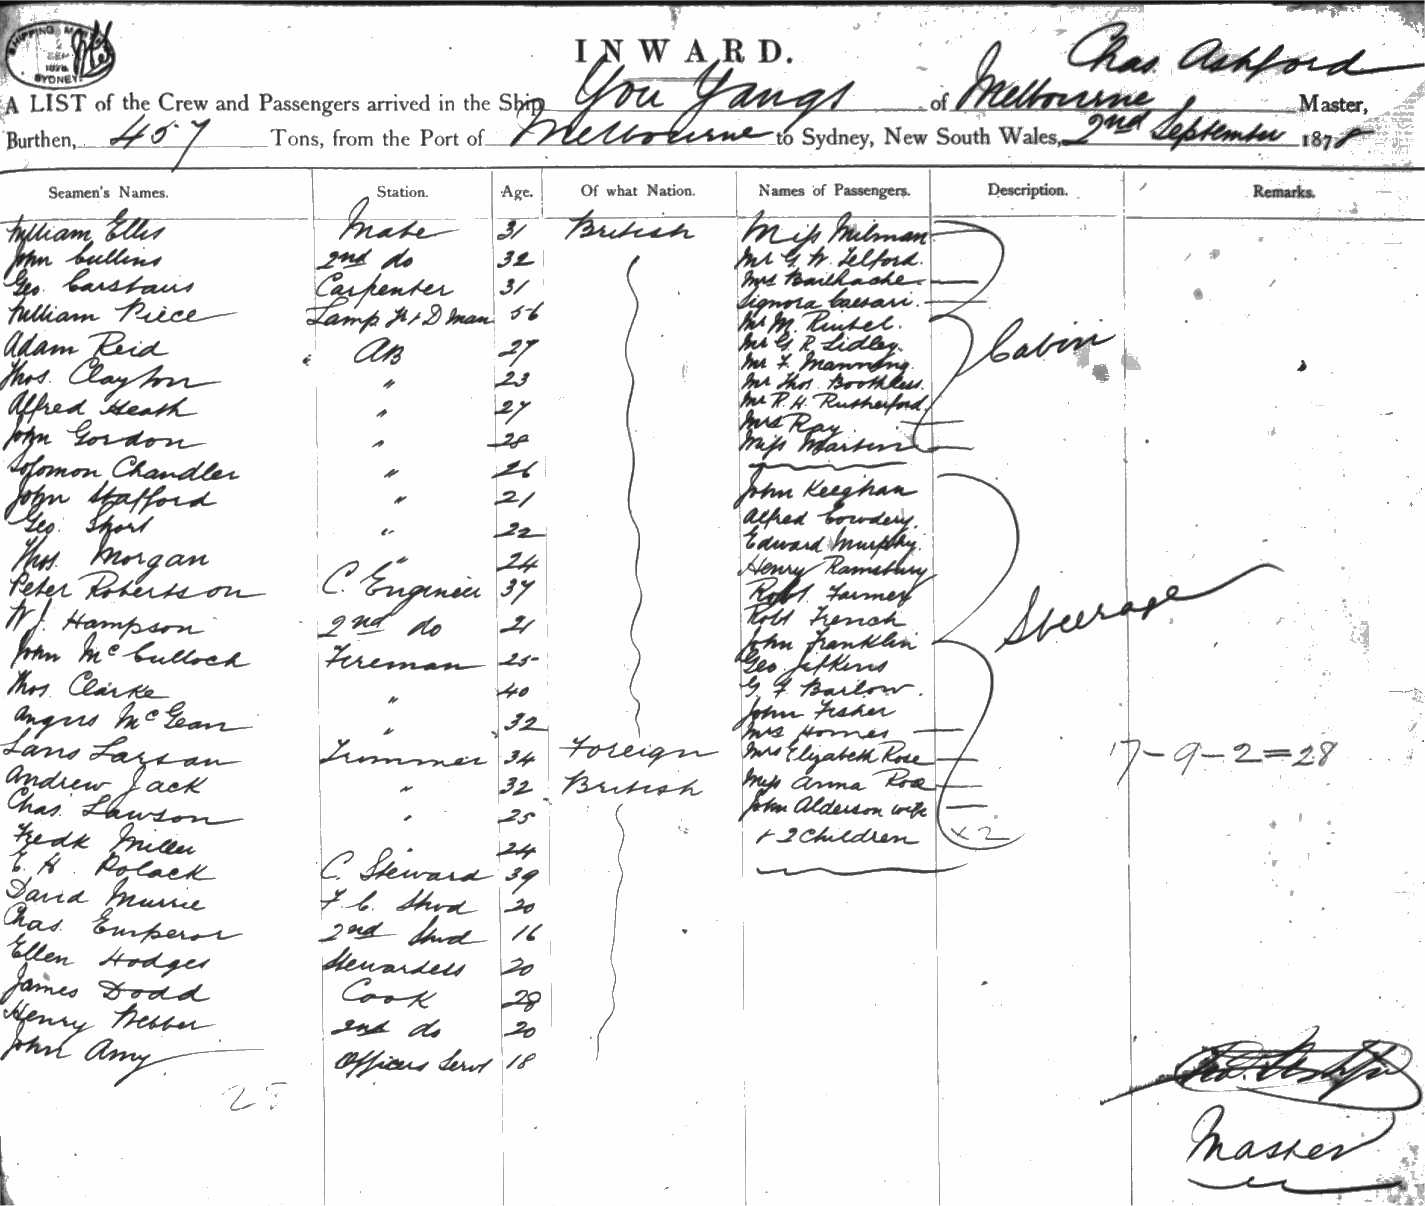 SHIPPING MASTER'S
SEP
1878
SYDNEY
INWARD.
Chas. Ashford
A LIST of the Crew and Passengers arrived in the Ship You Yangs of Melbourne Master,
Burthen, 457 Tons, from the Port of Melbourne to Sydney, New South Wales, 2nd September 1878
Seamen's Names. Station. Age. Of what Nation. Names of Passengers. Description. Remarks.
William Ellis Mate 31 British Miss Milman
John Cullins 2nd do 32 Mr G. W. Telford.
Geo. Carstairs Carpenter 31 Mrs Bailhache
Signora Caesari.
William Piece Lamp Tr & D man 56 Mr M.
Adam Reid AB 27 Mr G R Lidley.
Cabin
Mr F. Manning.
Thos. Clayton " 23 Mr Thos. Boothless.
Alfred Heath " 27 Mr R. H. Rutherford.
Mrs Ray.
John Gordon " 28 Miss Martin
Solomon Chandler " 26
John Stafford " 21 John Keeghan
Geo. Short " 22 Alfred Cowdery.
Thos. Morgan " 24 Edward Murphy.
Henry Ramsbury
Peter Robertson C. Engineer 37 Robt. Farmer
Steerage
W J. Hampson 2nd do 21 Robt French
John Franklin
John McCulloch Fireman 25 Geo Jefkins
Thos. Clarke " 40 G. F Barlow.
Angus McGean " 32 John Fisher
Mrs Homes
Lans Larson Trimmer 34 Foreign Mrs Elizabeth Rose
17-9-2=28
Andrew Jack " 32 British Miss Anna Rose
Chas. Lawson " 25 John Alderson wife
Fredk Miller " 24 + 2 Children x2
E. H. Polack C. Steward 39
David Murrie F. C. Stwd 20
Chas. Emperor 2nd Stwd 16
Ellen Hodges Stewardess 20
James Dodd Cook 28
Henry Webber 2nd do 20
John Amy Officers Servt 18
Master